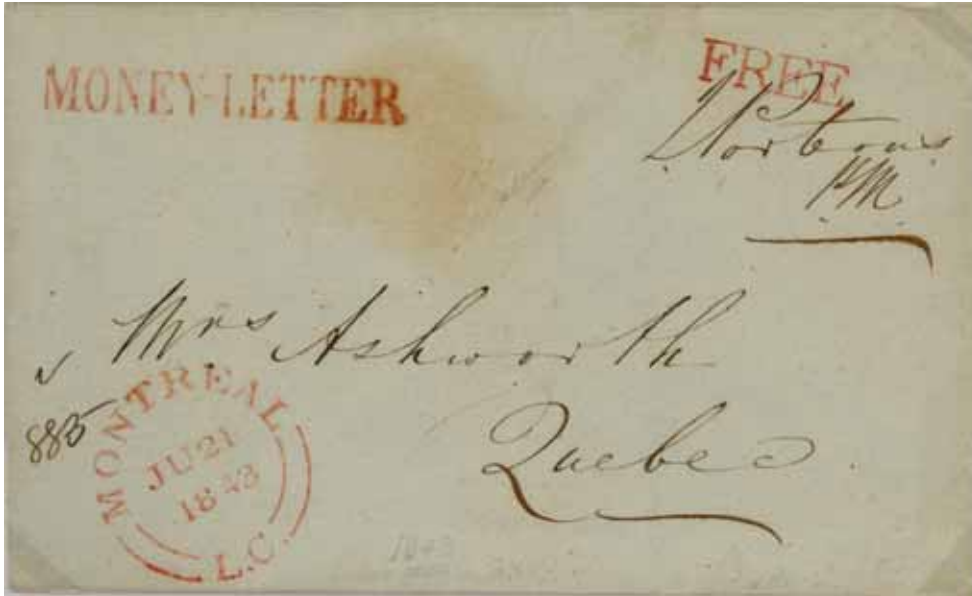 MONEY-LETTER
FREE
PM
Mrs Ashworth
885
Quebec
MONTREAL
JU 21
1843
L.C.
1843